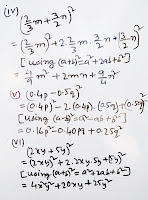 (iv) (2/3 m + 3/2 n)²
= (2/3 m)² + 2·2/3 m·3/2 n + (3/2 n)²
[using (a+b)² = a²+2ab+b²]
= 4/9 m² + 2mn + 9/4 n²
(v) (0.4p - 0.5q)²
= (0.4p)² - 2.(0.4p).(0.5q)+(0.5q)²
[using (a-b)² = a²-2ab+b²]
= 0.16p² - 0.40pq + 0.25q²
(vi) (2xy + 5y)²
= (2xy)² + 2.2xy.5y+(5y)²
[using (a+b)² = a²+2ab+b²]
= 4x²y² + 20xy² + 25y²